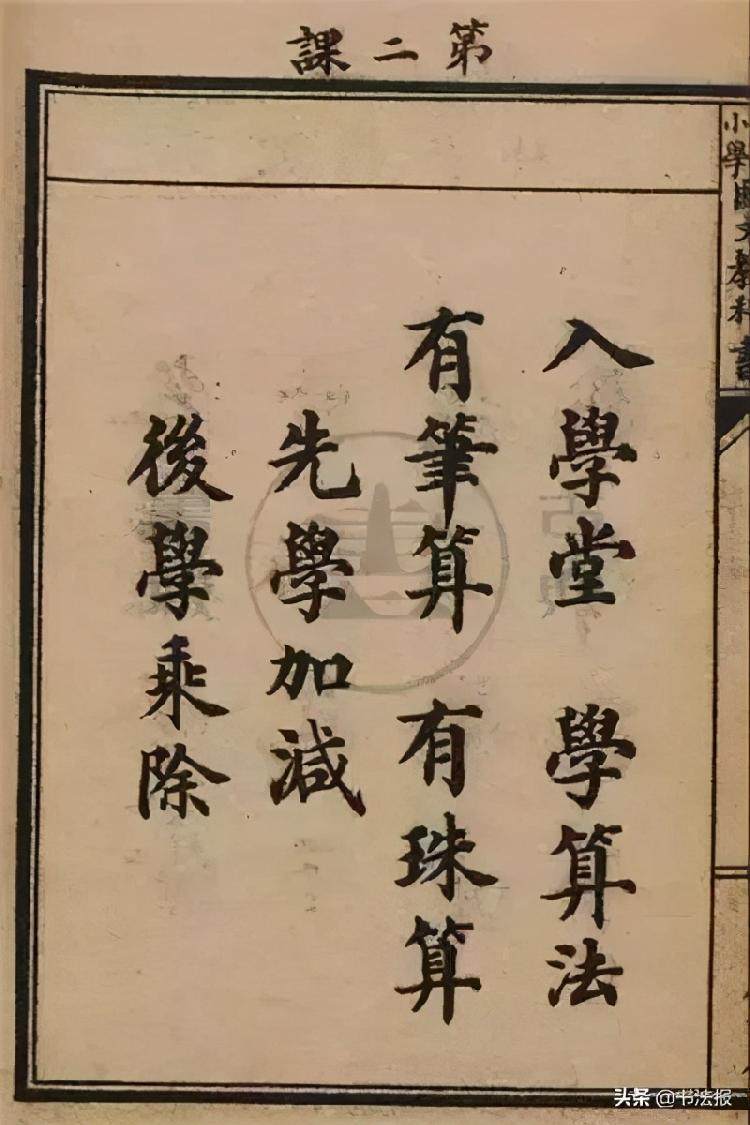 第二課
小學國文教科書
入學堂 學算法
有筆算 有珠算
先學加減
後學乘除
头条 @书法报